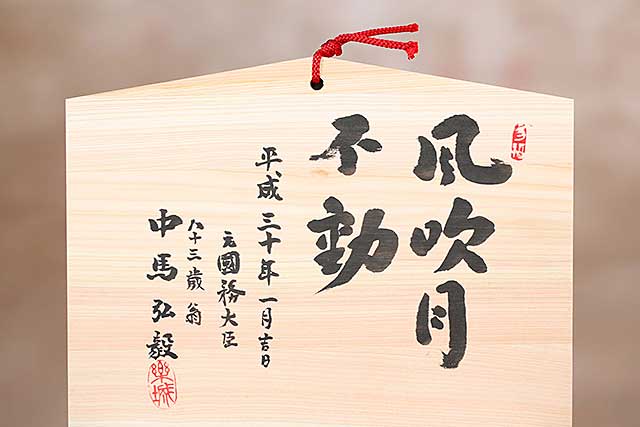 風吹月
不動
平成三十年一月吉日
元國務大臣
八十三歳翁
中馬弘毅
樂城